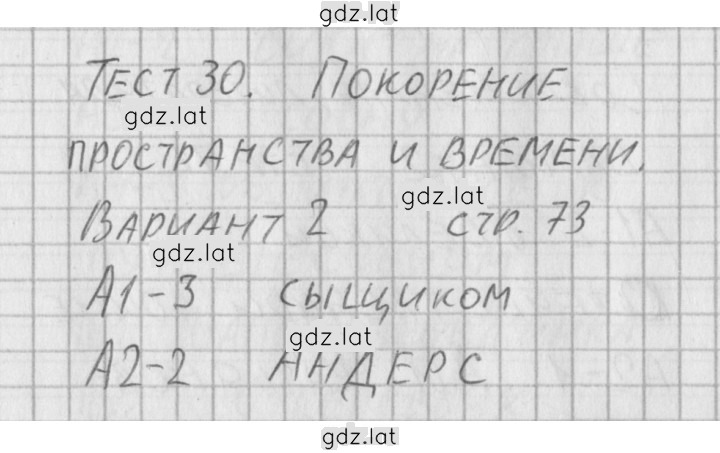 gdz.lat
ТЕСТ 30. ПОКОРЕНИЕ
gdz.lat
ПРОСТРАНСТВА И ВРЕМЕНИ.
gdz.lat
ВАРИАНТ 2 СТР. 73
gdz.lat
А1-3 СЫЩИКОМ
gdz.lat
А2-2 АНДЕРС
gdz.lat